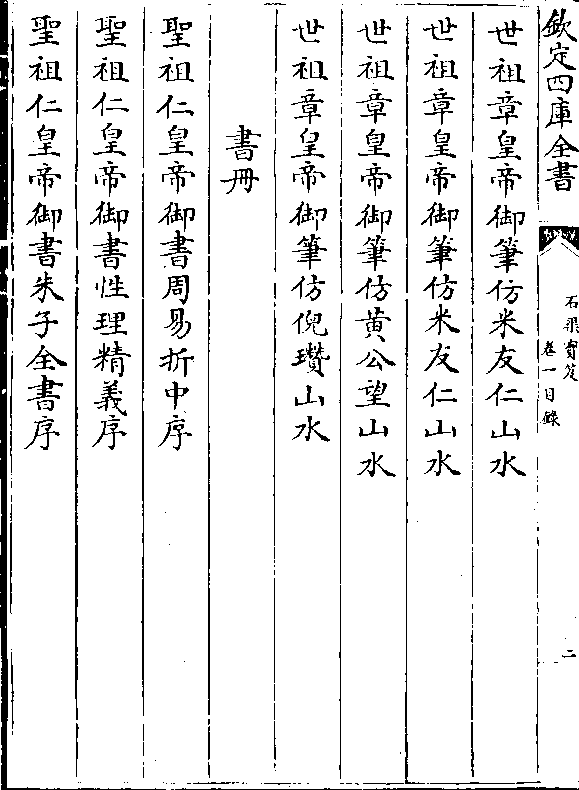 欽定四庫全書
石渠寳笈
卷一目錄
二
世祖章皇帝御筆仿米友仁山水
世祖章皇帝御筆仿米友仁山水
世祖章皇帝御筆仿黄公望山水
世祖章皇帝御筆仿倪瓚山水
書冊
聖祖仁皇帝御書周易折中序
聖祖仁皇帝御書性理精義序
聖祖仁皇帝御書朱子全書序